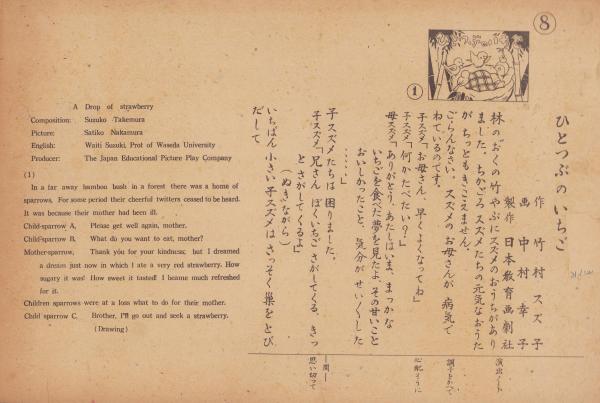 8
1
ひとつぶのいちご
作 竹村スズ子
画 中村幸子
製作 日本教育画劇社
林のおくの竹やぶにスズメのおうちがあり
ました。ちかごろスズメたちの元気なおうた
がちっともきこえません。
ごらんなさい、スズメのお母さんが病気で
ねているのです。
子スズメ「お母さん、早くよくなってね」
子スズメ「何かたべたい？」
母スズメ「ありがとう、あたしはいま、まっかな
いちごを食べた夢を見たよ、その甘いこと
おいしかったこと、気分がせいくした
……」
子スズメたちは困りました。
子スズメ「兄さん ぼくいちごさがしてくる、きっ
とさがしてくるよ」
（ぬきながら）
いちばん小さい子スズメはさっそく巣をとび
だして
演出ノート
調子をかえて
心配そうに
―間―
思い切って
A Drop of strawberry
Composition: Suzuko Takemura
Picture: Satiko Nakamura
English: Waiti Suzuki, Prof of Waseda University
Producer: The Japan Educational Picture Play Company
(1)
In a far away bamboo bush in a forest there was a home of
sparrows. For some period their cheerful twitters ceased to be heard.
It was because their mother had been ill.
Child-sparrow A, Please get well again, mother.
Child-sparrow B, What do you want to eat, mother?
Mother-sparrow, Thank you for your kindness; but I dreamed
a dream just now in which I ate a very red strawberry. How
sugary it was! How sweet it tasted! I became much refreshed
for it.
Children sparrows were at a loss what to do for their mother.
Child sparrow C, Brother, I'll go out and seek a strawberry.
(Drawing)